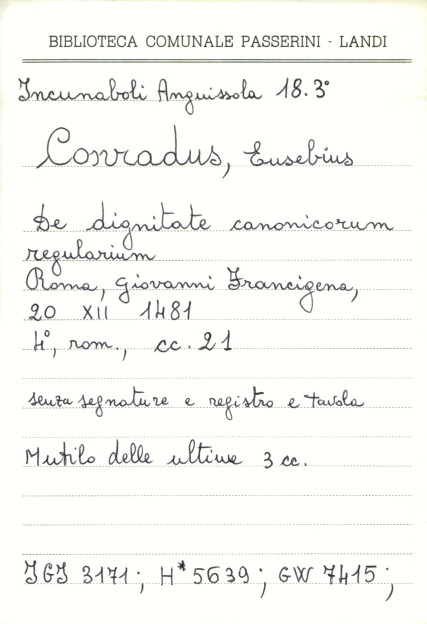 BIBLIOTECA COMUNALE PASSERINI - LANDI
Incunaboli Anguissola 18.3°
Conradus, Eusebius
De dignitate canonicorum
regularium
Roma, Giovanni Francigena,
20 XII 1481
4°, rom., cc. 21
senza segnature e registro e tavola
Mutilo delle ultime 3 cc.
IGI 3171; H* 5639; GW 7415;